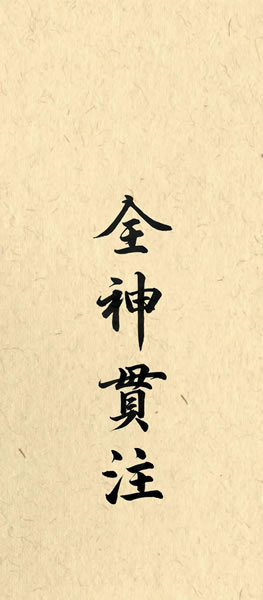 全神貫注